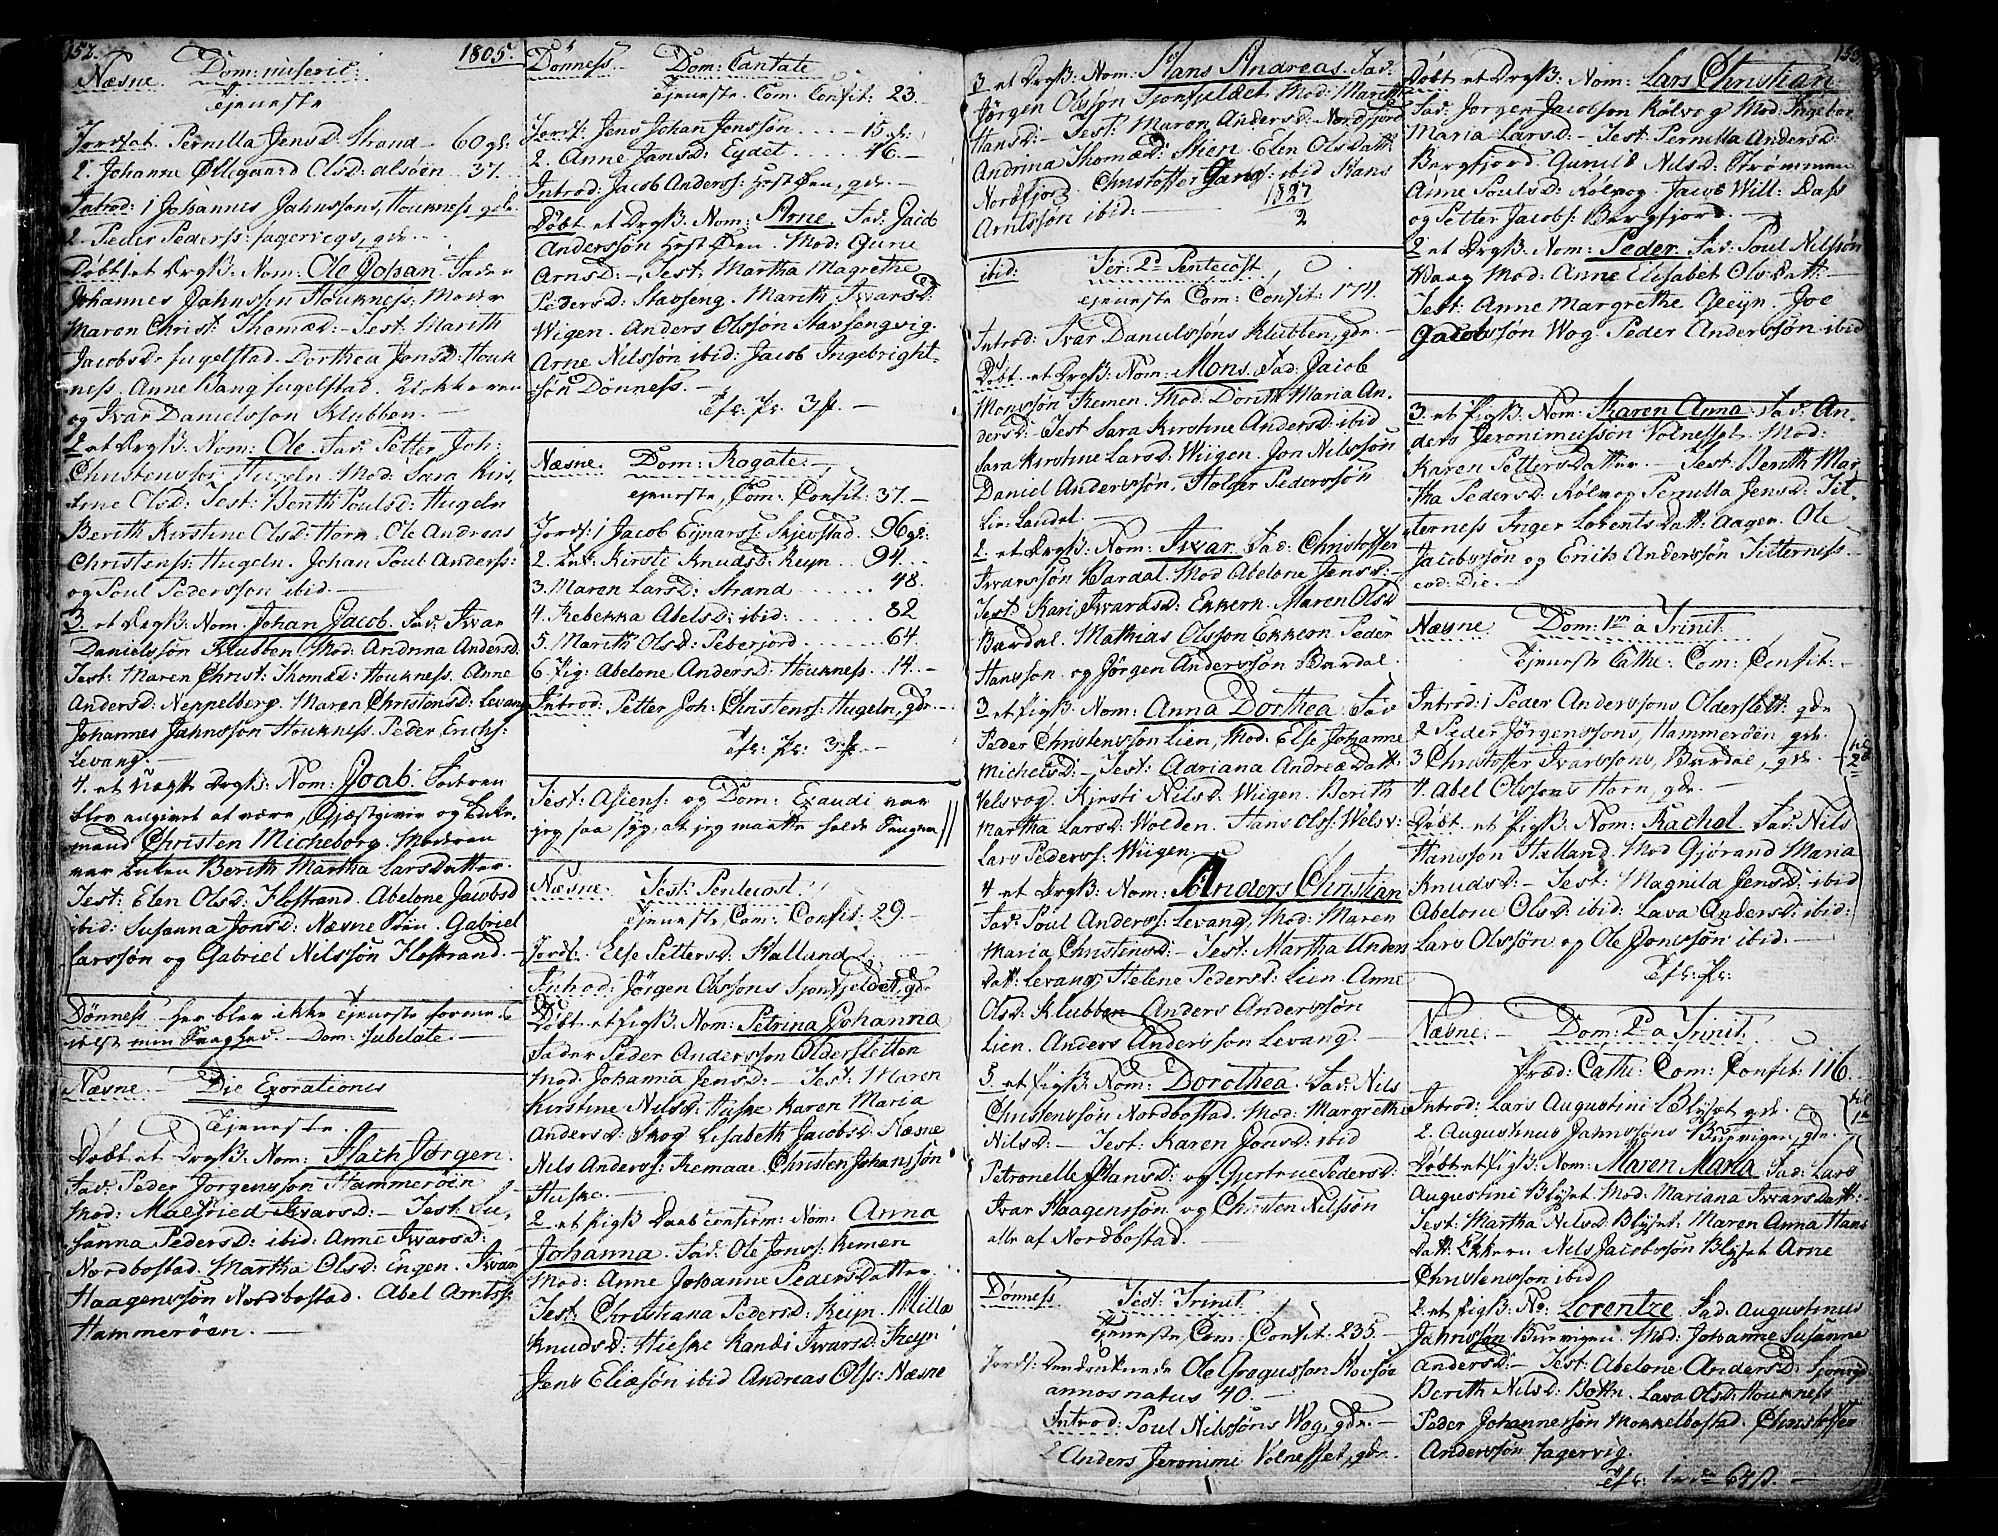 152.
1805.
Næsne. Dom: miseric:
Tjeneste
Jordf: at Pernilla Jensd: Strand - 60 gl:
2. Johanne Øllegaard Olsd: alsöen .. 37.
Introd: 1 Johannes Jahnssøns, Houkness gdr.
2. Peder Pederss: fagervegs, gdr. ..
Døbt 1 et Drgß: Nom: Ole Johan. Fader
Johannes Jahnssøn Houkness. Moder
Maren Christ: Thomæd: - Test: Marith
Jacobsd: fugelstad. Dorthea Jonsd: Houk
ness. Anne Bang fugelstad. Klokkeren
og Ivar Danielssøn Klubben. -
2 et Drgß: Nom: Ole. Fad: Petter Joh:
Christenssøn Hugeln. Mod: Sara Kirs,
tine Olsd: Test: Berith Poulsd: Hugeln
Berith Kirstine Olsd: Horn. Ole Andreas
Christenss: Hugeln. Johan Poul Anderss:
og Poul Pederssøn ibid. -
3. et Drgß: Nom. Johan Jacob. Fad: Ivar
Danielssøn Klubben Mod: Andrina Andersd.
Test: Maren Christ: Thomæd: Houkness. Anne
Andersd: Neppelberg. Maren Christensd: Levang
Johannes Jahnssøn Houkness. Peder Erichs:
Levang. -
4. et uægte Drgß: Nom: Joab. Faderen
blev angivet at være, Gjæstgiver og Enke,
mand Christen Micheborg. Moderen
var Enken Berith Martha Larsdatter.
Test: Elen Olsd: Flostrand. Abelone Jacobsd
ibid: Susanna Jonsd: Næsne Øiin. Gabriel
Larssøn og Gabriel Nilssøn Flostrand. -
Dønness her blev ikke Tjeneste forme-
delst min Svaghed. - Dom: Jubelate. -
Næsne. - Die Exorationes
Tjeneste.
Døbt et Drgß: Nom: Hach Jørgen.
Fad: Peder Jørgenssøn Hammerøen
Mod: Malfried Ivarsd: - Test: Su,
sanna Pedersd: ibid: Anne Ivarsd:
Nordbostad. Martha Olsd: Engen. Ivar
Haagenssøn Nordbostad. Abel Arntss:
Hammerøen. -
Dönness Dom: Cantate
Tjeneste. Com. Confit: 23.
Jordf: Jens Johan Jenssøn ..... 15 gl:
2. Anne Jansd: Eydet ...... 46. -
Introd: Jacob Anderss: Hestøen, gdr. -
Døbt et Drgß: Nom: Arne. Fad: Jacob
Anderssøn Hestøen. Mod: Gune
Arnsd: - Test: Martha Magrethe
Pedersd: Stavseng. Marith Ivarsd:
Wigen. Anders Olssøn Stavsengvig.
Arne Nilssøn ibid: Jacob Ingebright-
søn Dönness. -
Næsne. Dom: Rogate. -
Tjeneste, Com: Confit: 37. -
Jordf: 1 Jacob Eynarss: Skjevstad. 96 gl:
2. Enk: Kirsti Knudsd: Reyn .. 94...
3. Maren Larsd: Strand ...... 48.
4. Rebekka Abelsd: ibid: ...... 82
5. Marith Olsd: Seberjord ...... 64.
6. Pig: Abelone Andersd: Houkness .. 14. -
Introd: Petter Joh: Christenss: Hugeln, gdr.
Fest: Asiens: og Dom: Exaudi var
jeg saa syg, at jeg maatte holde Sengen //
Næsne: Fest: Pentecost.
Tjeneste Com: Confit: 29. -
Jordf: Else Pettersd: Halland
Introd: Jörgen Olssøns Sjonfjeldet, gdr.
Døbt et Pigß: Nom: Petrina Johanna
Fader Peder Anderssøn Oldersletten
Mod: Johanna Jensd: - Test: Maren
Kirstine Nilsd: Huske Karen Maria
Andersd: Skog Lisabeth Jacobsd: Næsne
Nils Anderss: Remaae. Christen Johanssøn
Huske. -
2. et Pigß Daab confirm: Nom: Anna
Johanna. Fad: Ole Jonss: Remen
Mod: Anne Johanne Pedersdatter.
Test: Christiana Pedersd: Reyn. Milla
Knudsd: Hieske Randi Ivarsd: Reyn
Jens Eliæsön ibid Andreas Olss: Næsne
3 et Drgß: Nom: Hans Andreas. Fad:
Jörgen Olssøn Sjonfjeldet Mod: Marith
Hansd: - Test: Maren Andersd: Nordfjord
Andrina Thomæd: Stien. Elen Olsdatt:
Nordfjord. Christoffer ibid Hans
Arntssøn ibid: -
1827
2
ibid: Fer: 2d Pentecost
Tjeneste Com: Confit: 174.
Introd: Ivar Danielssøns Klubben, gdr. -
Døbt et Drgß: Nom: Mons. Fad: Jacob
Monssøn Remen. Mod: Dorith Maria An,
dersd: - Test Sara Kirstine Andersd: ibid
Sara Kirstine Larsd: Wiigen. Jon Nilssøn
Daniel Anderssøn, Holger Pederssøn
2. et Drgß: Nom: Iwar. Fad: Christoffer
Ivarssøn Bardal. Mod Abelone Jensd: -
Test Kari Ivarsd: Ekkern. Maren Olsd
Bardal. Mathias Olssøn Ekkern Peder
Hanssøn og Jørgen Anderssøn Bardal.
3 et Pigß: Nom: Anna Dorthea. Fad
Peder Christenssøn Lien, Mod: Else Johanne
Michelsd: - Test: Adriana Andreædatt:
Velsvog. Kirsti Nilsd: Wiigen. Berith
Martha Larsd: Wolden. Hans Olss: Welsv:
Lars Pederss: Wiigen.
4 et Drgß: Nom: Anders Christian
Fad: Poul Anderss: Levang, Mod: Maren
Maria Christensd: - Test: Martha Anders
Datt: Levang, Helene Pedersd: Lien. Anne
Olsd: Klubben Anders Anderssøn
Lien. Anders Anderssøn Levang. -
5. et Pigß: Nom: Dorothea. Fad: Nils
Christenssøn Nordbostad. Mod: Margrethe
Nilsd: - Test: Karen Jonsd: ibid
Petronelle Hansd: og Gjertrue Pedersd:
Ivar Haagenssøn og Christen Nilssøn
alle af Nordbostad. -
Dönness Fest: Trinit.
Tjeneste Com: Confit: 235. -
annos natus 40. -
Introd: Poul Nilssøns Wog, gdr. -
2 Anders Jeronimi Volnesset, gdr.
Døbt et Drgß: Nom: Lars Christian
Fad: Jørgen Jacobssøn Rölvog Mod Ingebor
Maria Larsd: - Test: Pernilla Andersd:
Bergfjord Gunild Nilsd: Strømmen
Anne Poulsd: Rölvog Jacob Will: Dass
og Petter Jacobs: Bergfjord. -
2 et Drgß: Nom: Peder. Fad: Poul Nilssøn
Vaag Mod: Anne Elisabet Olsdatt: -
Test: Anne Margrethe Joe
Jacobssøn Wog. Peder Anderssøn ibid
3. et Pigß: Nom: Karen Anna. Fad: An-
ders Jeronimussøn Volnesset. Mod:
Karen Pettersdatter. - Test: Berith Mar
tha Pedersd: Rölvog Pernilla Jensd: Tit,
terness Inger Lorentsdatt: Aagen. Ole
Jacobssøn og Erick Anderssøn Titterness.
eod: Die. -
Næsne. Dom: 1m a Trinit.
Tjeneste Cathe: Com: Confit: -
Introd: 1 Peder Anderssøns Olderslett: gdr
2 Peder Jörgenssøns, Hammerøen gdr.
3 Christoffer Ivarssøns, Bardal, gdr. -
4. Abel Olssøns Horn, gdr. -
Døbt: et Pigß: Nom: Rachel. Fad: Nils
Hanssøn Halland. Mod Gjörand Maria
Knudsd: - Test: Magnild Jensd: ibid
Abelone Olsd: ibid: Lava Andersd: ibid:
Lars Olssøn og Ole Jonssøn ibid: -
Næsne: - Dom: 2d a Trinit.
Præd: Cathe: Com: Confit: 116.
Introd: Lars Augustini Blyset gdr.
2. Augustinus Jahnssøns gdr.
Døbt et Pigß: Nom: Maren Maria Fad: Lars
Augustini Blyset Mod: Mariana Ivarsdatt:
Test: Martha Nilsd: Blyset. Maren Anna Hans
Datt: Ekkern Nils Jacobssøn Blyset Arne
Christenssøn ibid
2. et Pigß: No: Lorentze. Fad: Augustinus
Jahnssøn Mod: Johanne Susanne
Andersd: - Test: Abelone Andersd:
Berith Nilsd: Botn. Lava Olsd: Houkness
Peder Johannessøn Mokkelbostad. Christoffer
Anderssøn Fagervig.